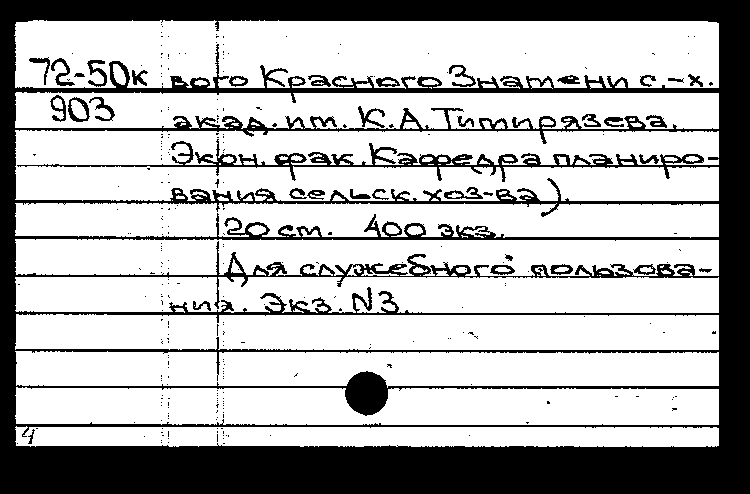 72-50к вого Красного Знамени с.-х.
903 акад. им. К.А. Тимирязева.
Экон. фак. Кафедра планиро-
вания сельск. хоз-ва).
20 ст. 400 экз.
Для служебного пользова-
ния. Экз. N3.
4